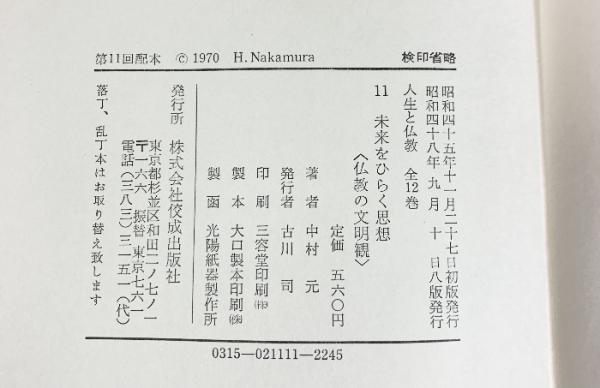 第11回配本 © 1970 H. Nakamura 検印省略
昭和四十五年十一月二十七日初版発行
昭和四十八年 九月 十 日八版発行
人生と仏教 全12巻
11 未来をひらく思想
〈仏教の文明観〉
定価 五六〇円
著者 中村 元
発行者 古川 司
印刷 三容堂印刷㈲
製本 大口製本印刷㈱
製函 光陽紙器製作所
発行所 株式会社佼成出版社
東京都杉並区和田二ノ七ノ一
〒一六六 振替 東京七七六一
電話(三八三)三一五一(代)
落丁、乱丁本はお取り替え致します
0315-021111-2245